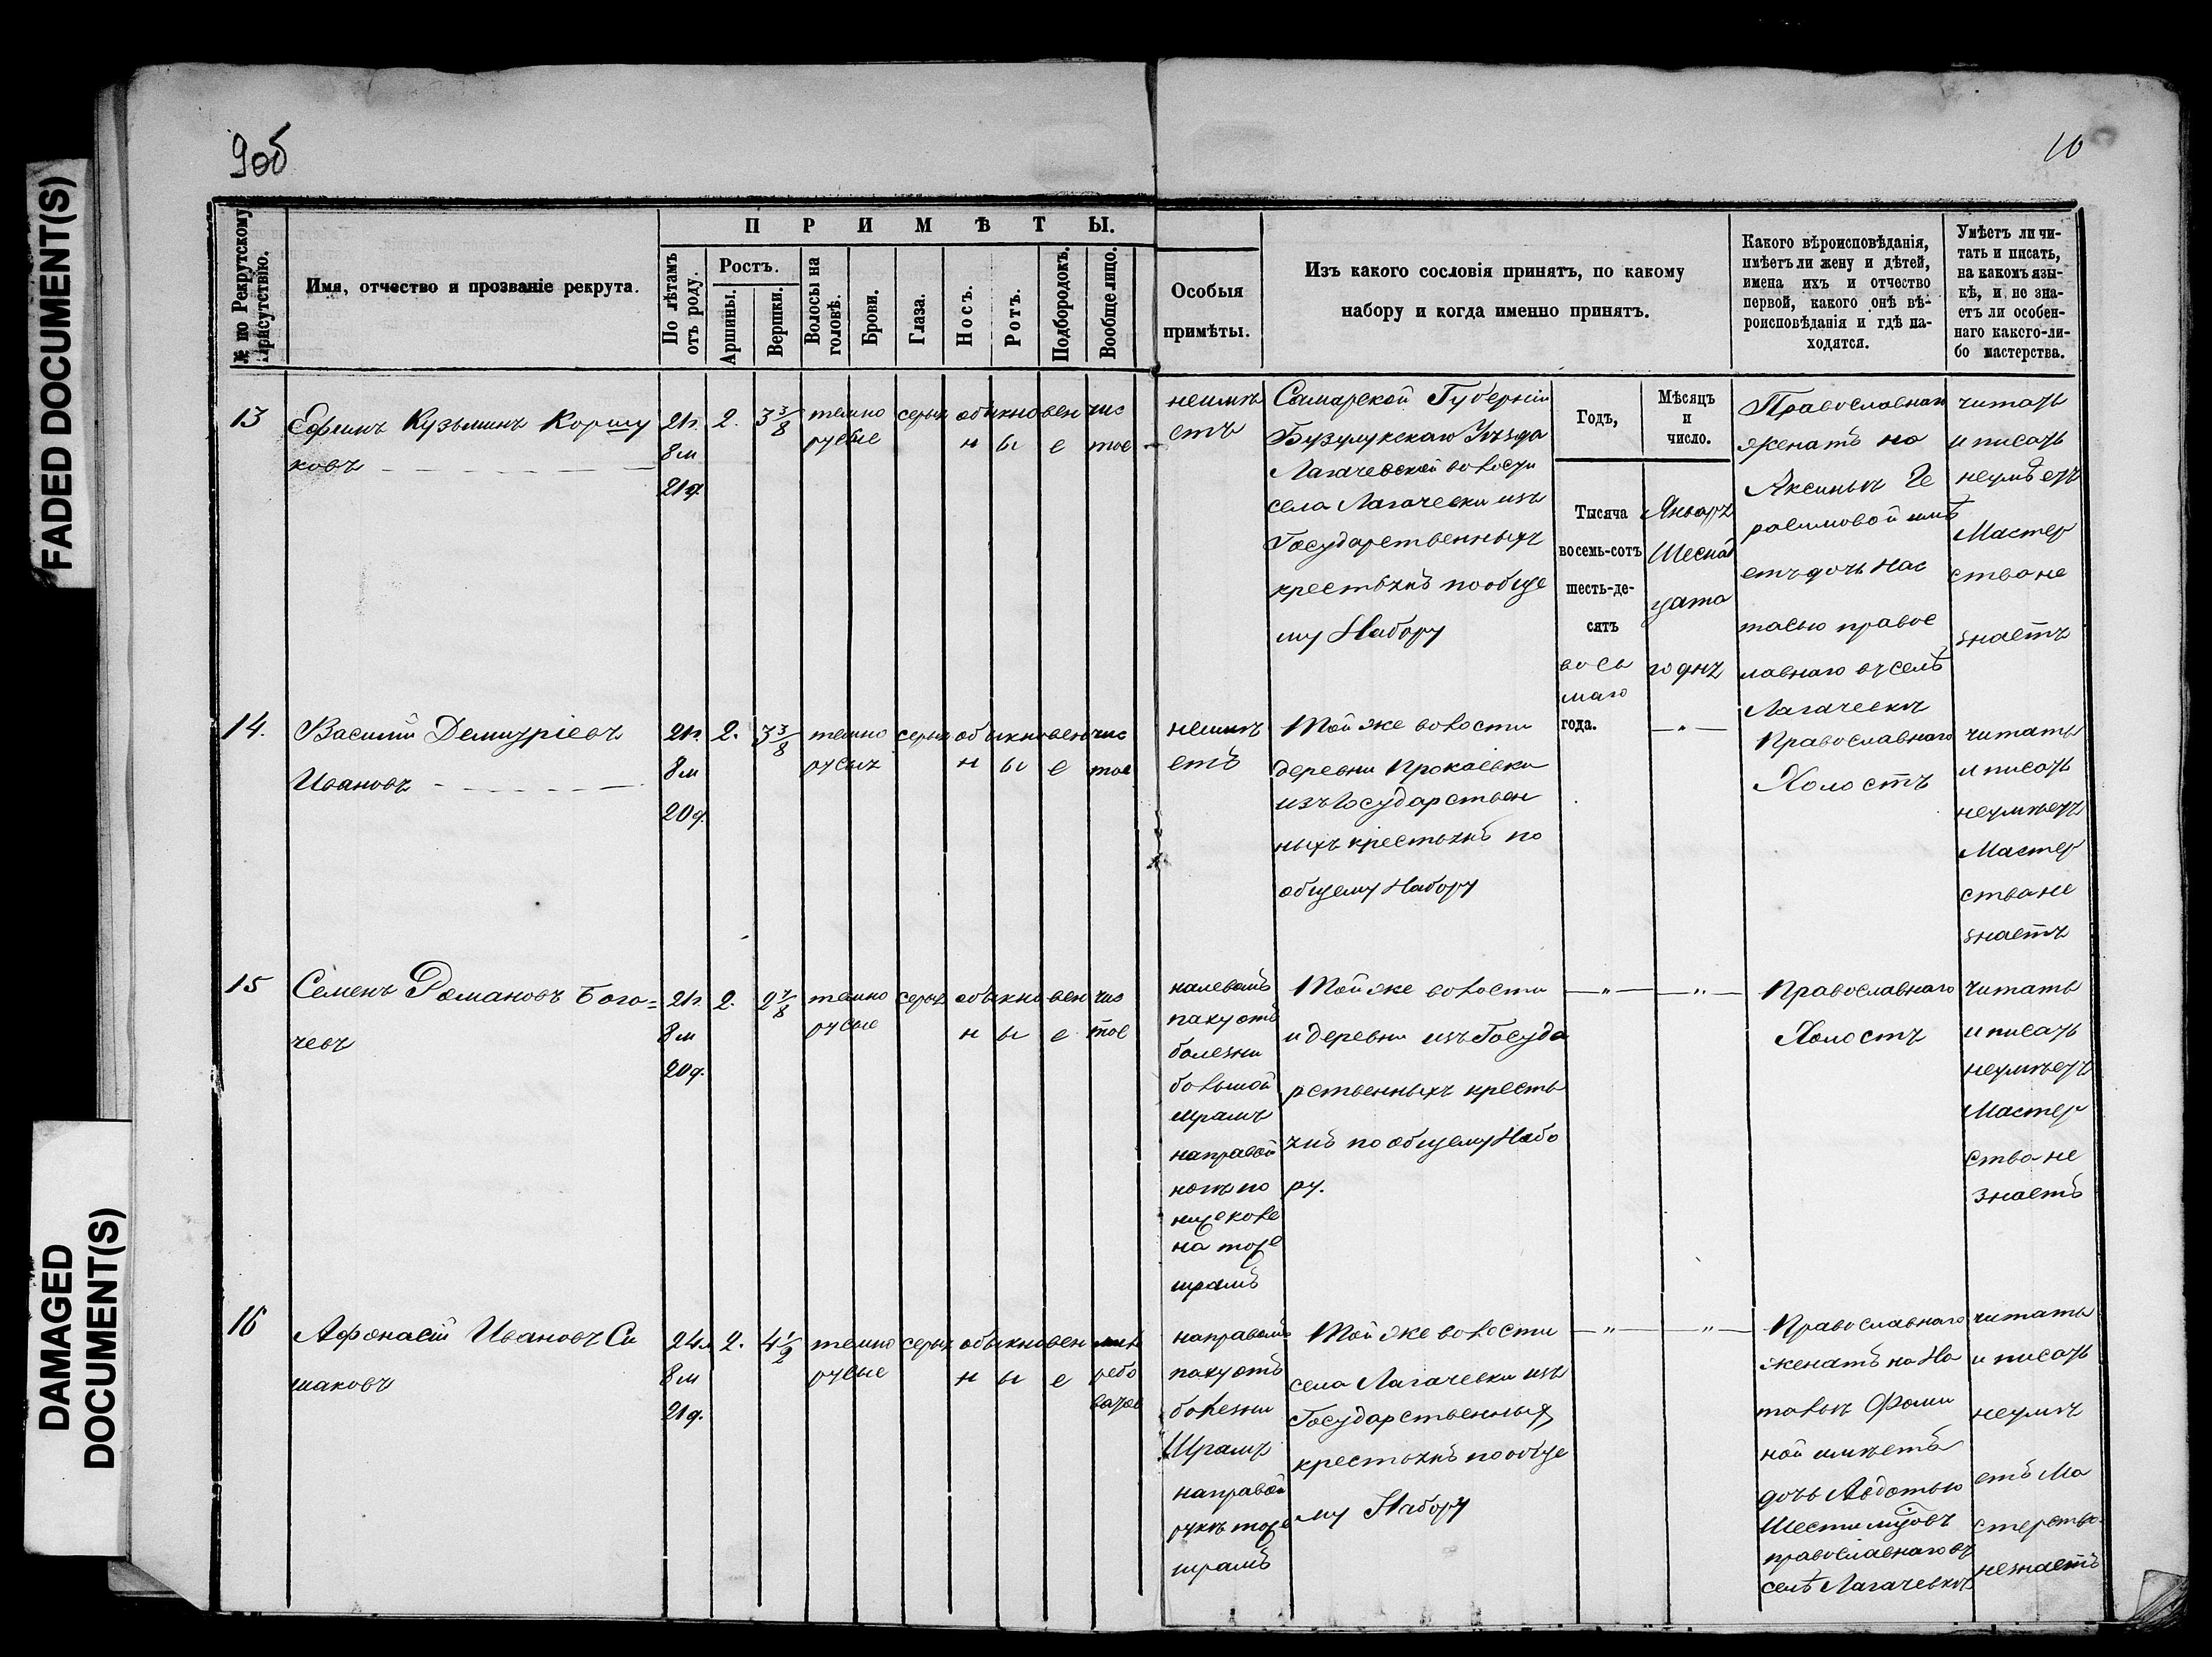 FADED DOCUMENT(S)
DAMAGED
DOCUMENT(S)
9об
10
№ по Рекрутскому
Присутствію.
Имя, отчество и прозваніе рекрута.
ПРИМѢТЫ.
По лѣтамъ
отъ роду.
Ростъ.
Аршины.
Вершки.
Волосы на
головѣ.
Брови.
Глаза.
Носъ.
Ротъ.
Подбородокъ.
Вообще лицо.
Особыя
примѣты.
Изъ какого сословія принятъ, по какому
набору и когда именно принятъ.
Какого вѣроисповѣданія,
имѣетъ ли жену и дѣтей,
имена ихъ и отчество
первой, какого онѣ вѣ-
роисповѣданія и гдѣ на-
ходятся.
Умѣетъ ли чи-
тать и писать,
на какомъ язы-
кѣ, и не зна-
етъ ли особен-
наго каксго-ли-
бо мастерства.
Годъ,
Мѣсяцъ
и
число.
13
Ефимъ Кузьминъ Коршу
ковъ
21г.
8м
21д.
2.
3 3/8
темно
русые
серые
обыкновен
ные
чис
тое
неимѣ
етъ
Самарской Губерніи
Бузулукскаго Уѣзда
Лагачевской волости
села Лагачевки изъ
Государственныхъ
крестьянъ пообще
му Набору
Тысяча
восемь-сотъ
шесть-де-
сятъ
вось
маго
года.
Январь
Шеснад
цата
го дня
Православнаго
женатъ на
Аксиньѣ Ге
расимовой имѣ
етъ дочь Нас
тасью правос
лавнаго въ селѣ
Лагачевкѣ
читать
и писать
неумѣетъ
Мастер
ства не
знаетъ
14.
Василій Демитріевъ
Ивановъ
21г.
8м
20д.
2.
3 3/8
темно
русыя
серые
обыкновен
ные
чис
тое
неимѣ
етъ
Той же волости
деревни Прокаевки
изъ Государствен
ныхъ крестьянъ по
общему Набору
— „ —
Православнаго
Холостъ
читать
и писать
неумѣетъ
Мастер
ства не
знаетъ
15
Семенъ Романовъ Бого=
чевъ
21г
8м
20д.
2.
2 7/8
темно
русые
серые
обыкновен
ные
чис
тое
налевомъ
паху отъ
болезни
большой
шрамъ
направой
ноге по
ниже коле
на тоже
шрамъ
Той же волости
и деревни изъ Госуда
рственныхъ кресть
янъ по общему Набо
ру.
— „ — „ —
Православнаго
Холостъ
читать
и писать
неумѣетъ
Мастер
ства не
знаетъ
16
Афонасій Ивановъ Си
маковъ
24л
8м
21д.
2.
4 1/2
темно
русые
серые
обыкновен
ные
ребо
ватое
направомъ
паху отъ
болезни
Шрамъ
направой
рукѣ тоже
шрамъ
Той же волости
села Лагачевки изъ
Государственныхъ
крестьянъ пообще
му Набору
— „ — „ —
Православнаго
женатъ на На
тальѣ Фоми
ной имѣетъ
дочь Авдотью
Шести лѣтъ
православнаго въ
селѣ Лагачевкѣ
читать
и писать
неумѣ
етъ Ма
стерства
незнаетъ